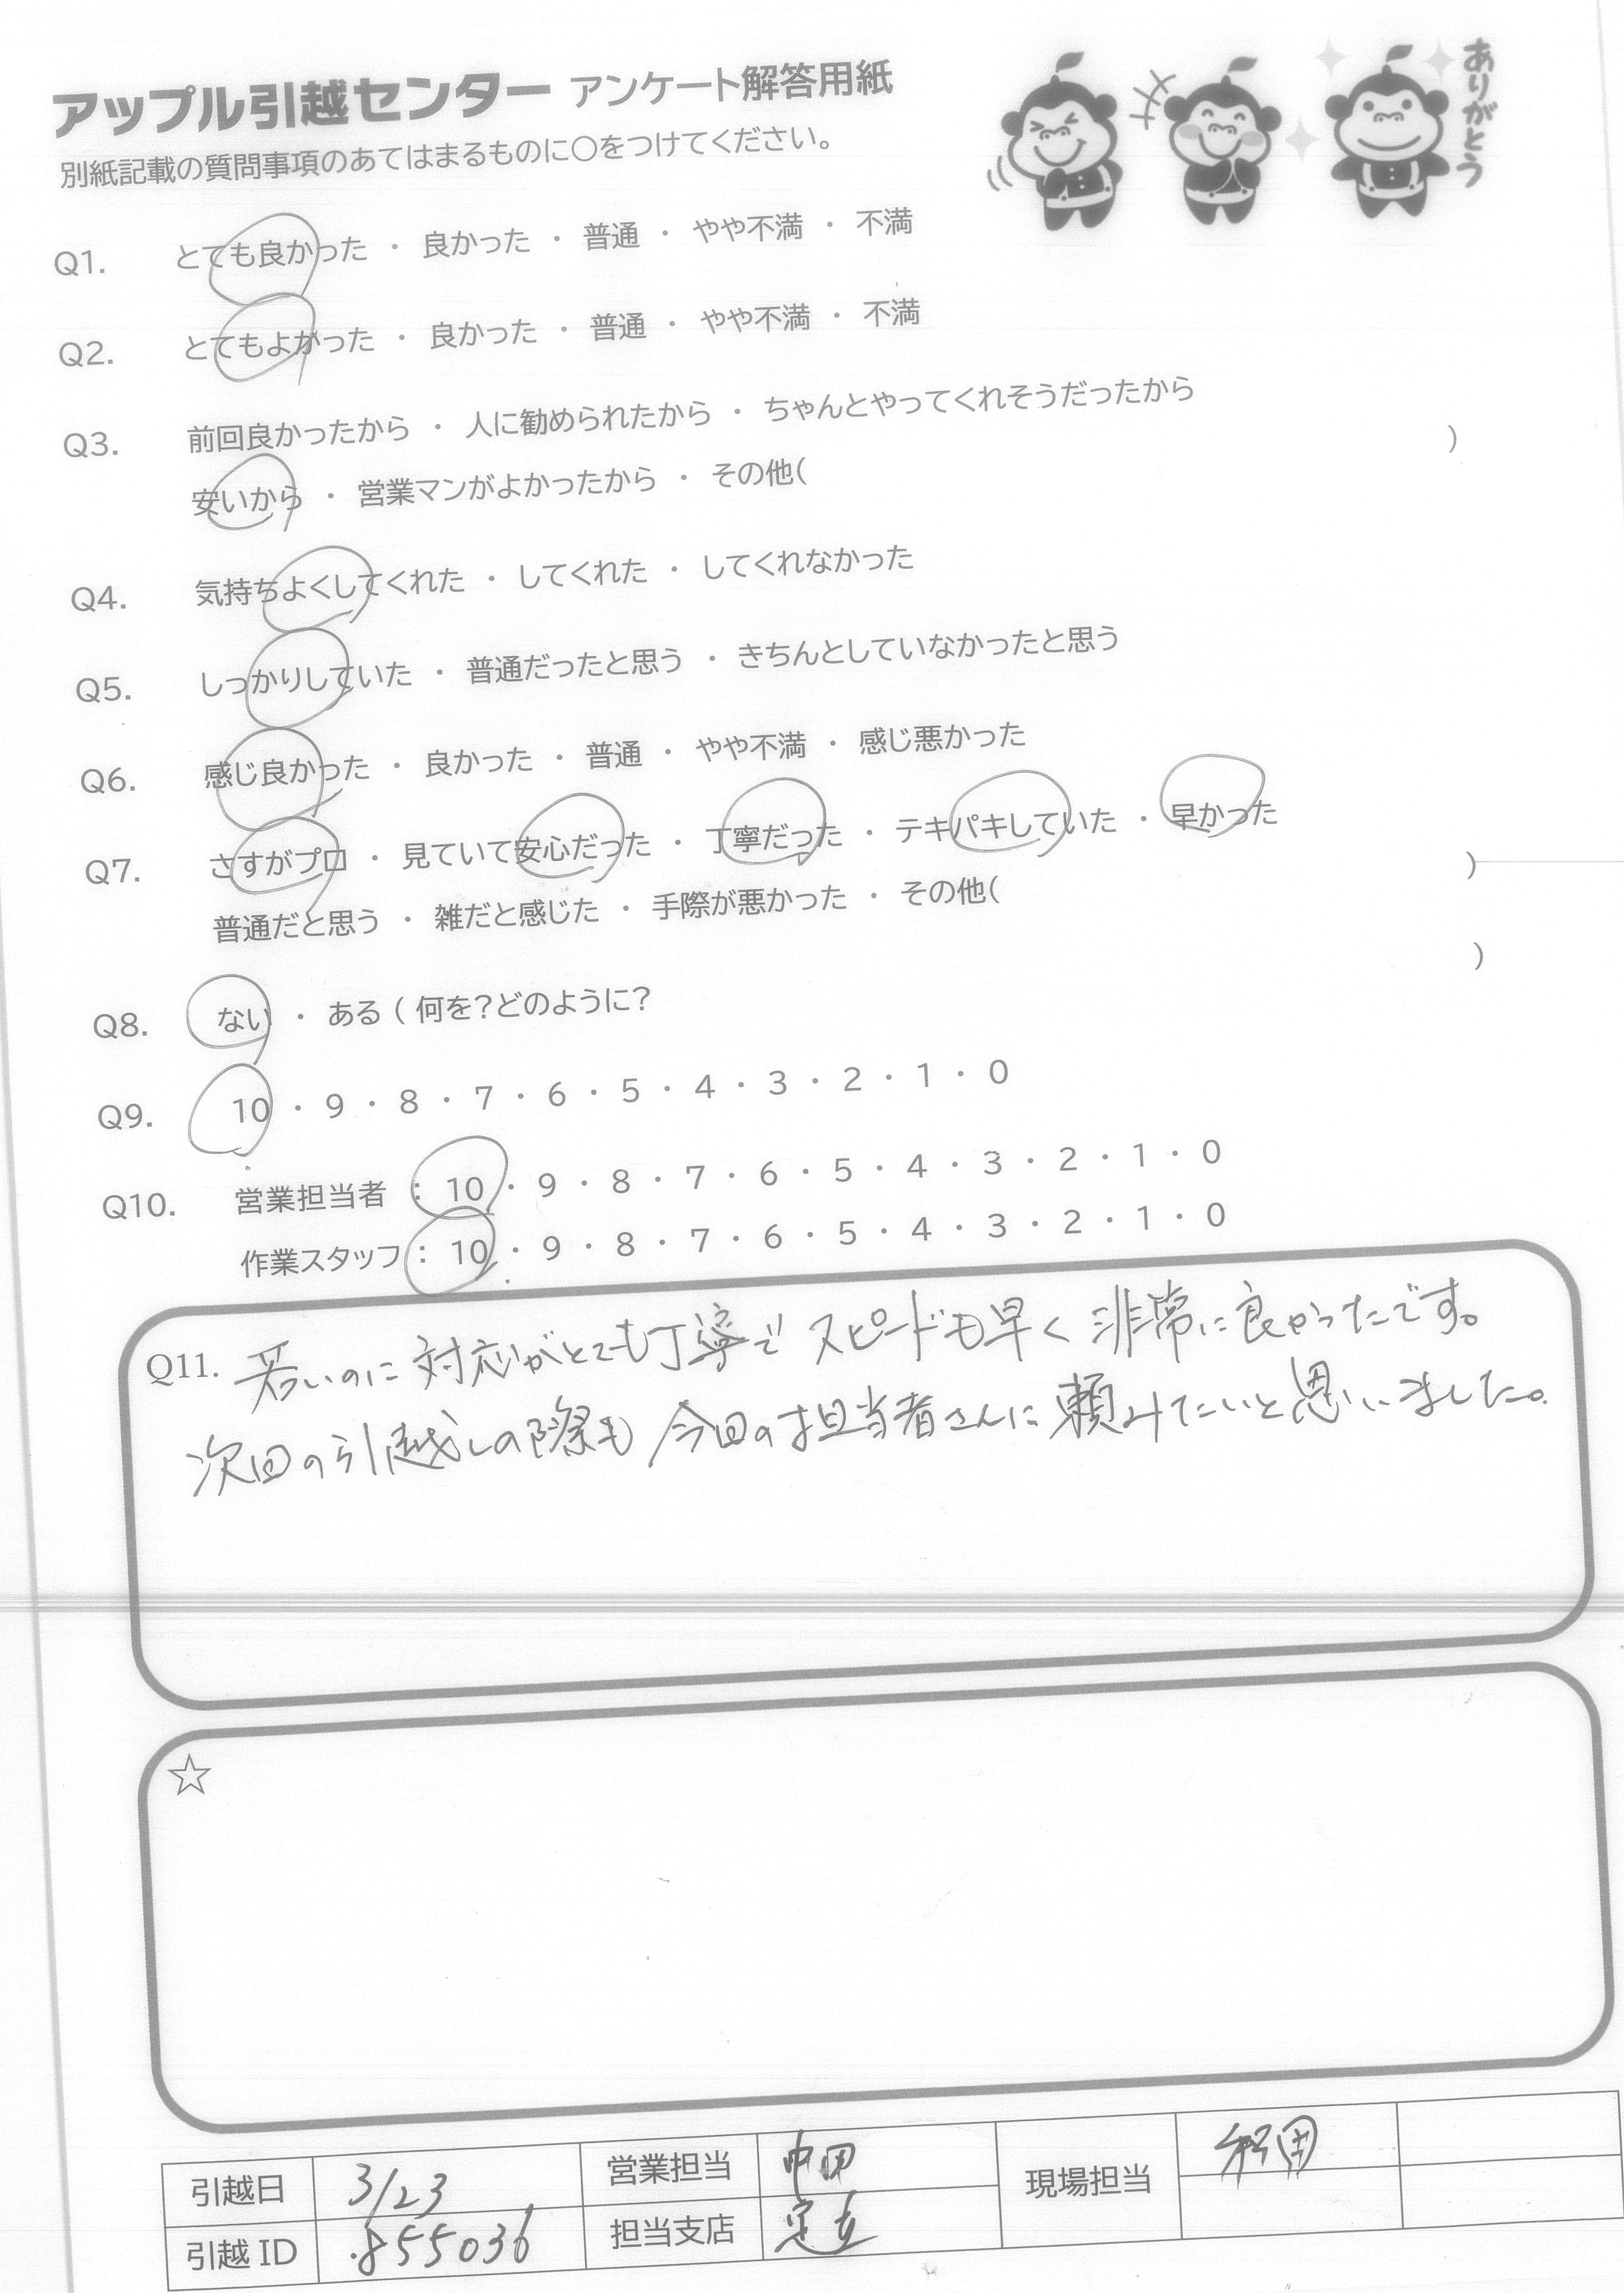 アップル引越センター アンケート解答用紙
別紙記載の質問事項のあてはまるものに○をつけてください。
ありがとう
Q1. とても良かった ・ 良かった ・ 普通 ・ やや不満 ・ 不満
Q2. とてもよかった ・ 良かった ・ 普通 ・ やや不満 ・ 不満
Q3. 前回良かったから ・ 人に勧められたから ・ ちゃんとやってくれそうだったから
安いから ・ 営業マンがよかったから ・ その他( )
Q4. 気持ちよくしてくれた ・ してくれた ・ してくれなかった
Q5. しっかりしていた ・ 普通だったと思う ・ きちんとしていなかったと思う
Q6. 感じ良かった ・ 良かった ・ 普通 ・ やや不満 ・ 感じ悪かった
Q7. さすがプロ ・ 見ていて安心だった ・ 丁寧だった ・ テキパキしていた ・ 早かった
普通だと思う ・ 雑だと感じた ・ 手際が悪かった ・ その他( )
Q8. ない ・ ある ( 何を?どのように? )
Q9. 10 ・ 9 ・ 8 ・ 7 ・ 6 ・ 5 ・ 4 ・ 3 ・ 2 ・ 1 ・ 0
Q10. 営業担当者 : 10 ・ 9 ・ 8 ・ 7 ・ 6 ・ 5 ・ 4 ・ 3 ・ 2 ・ 1 ・ 0
作業スタッフ : 10 ・ 9 ・ 8 ・ 7 ・ 6 ・ 5 ・ 4 ・ 3 ・ 2 ・ 1 ・ 0
Q11. 若いのに対応がとても丁寧でスピードも早く非常に良かったです。
次回の引越しの際も今回の担当者さんに頼みたいと思いました。
☆
引越日 3/23 営業担当 中田 現場担当
引越ID 855036 担当支店